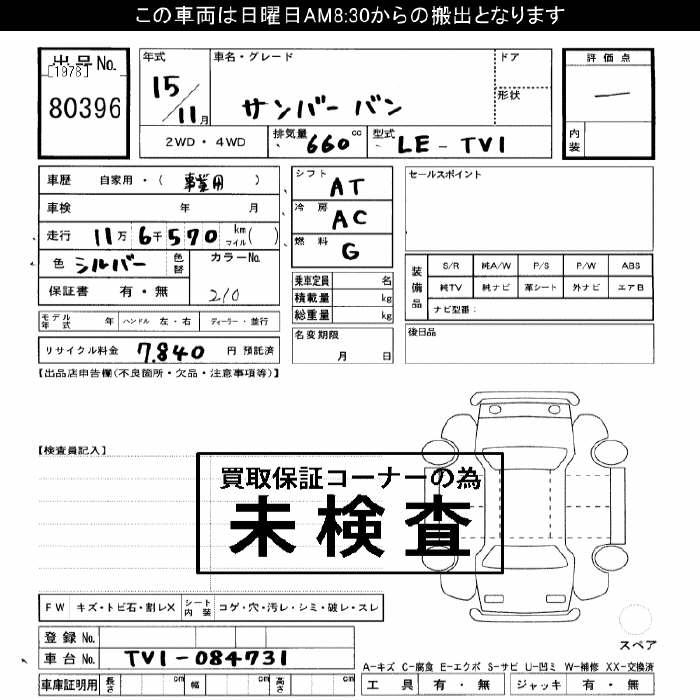 この車両は日曜日AM8:30からの搬出となります
出品No.
[1978]
80396
年式
15/11月
車名・グレード
サンバー バン
ドア
形状
評価点
―
内装
2WD・4WD
排気量 660cc
型式 LE-TV1
車歴 自家用・( 事業用 )
車検 年 月
走行 11万6千570 kmマイル( )
色 シルバー 色替
カラーNo. 210
保証書 有・無
シフト AT
冷房 AC
燃料 G
乗車定員 名
積載量 kg
総重量 kg
名変期限 月 日
セールスポイント
装備品
S/R 純A/W P/S P/W ABS
純TV 純ナビ 革シート 外ナビ エアB
ナビ型番:
後日品
モデル年式 年 ハンドル 左・右 ディーラー・並行
リサイクル料金 7,840 円 預託済
【出品店申告欄(不良箇所・欠品・注意事項等)】
【検査員記入】
買取保証コーナーの為
未検査
FW キズ・トビ石・割レX シート内装 コゲ・穴・汚レ・シミ・破レ・スレ
登録No.
車台No. TV1-084731
車庫証明用 長さ cm 幅 cm 高さ cm
スペア
A-キズ C-腐食 E-エクボ S-サビ U-凹ミ W-補修 XX-交換済
工具 有・無 ジャッキ 有・無